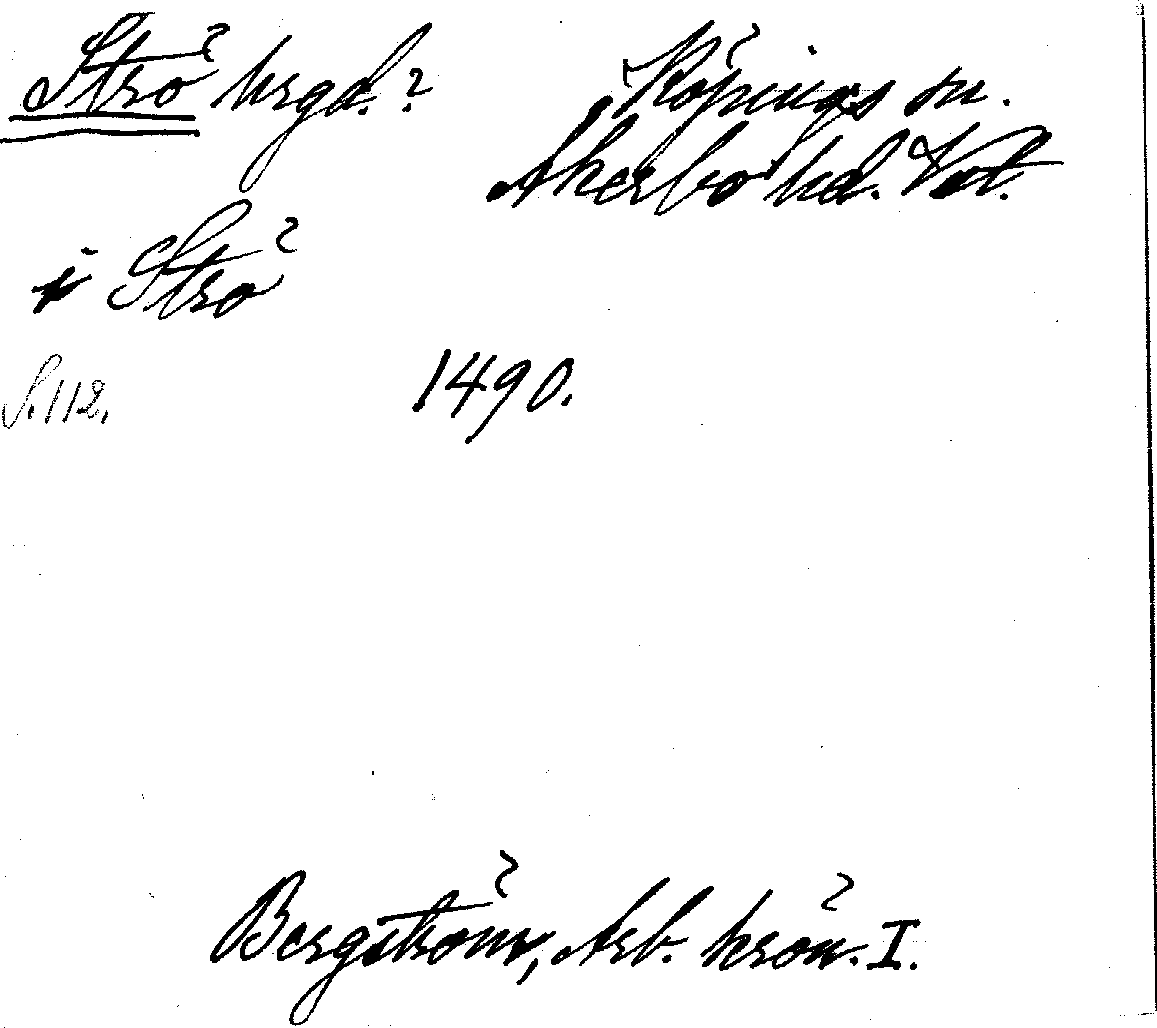 Strö hrgd.? Köpings sn.
Åkerbo hd. Vstl.
i Strö
S. 112. 1490.
Bergström, Arb. krön. I.